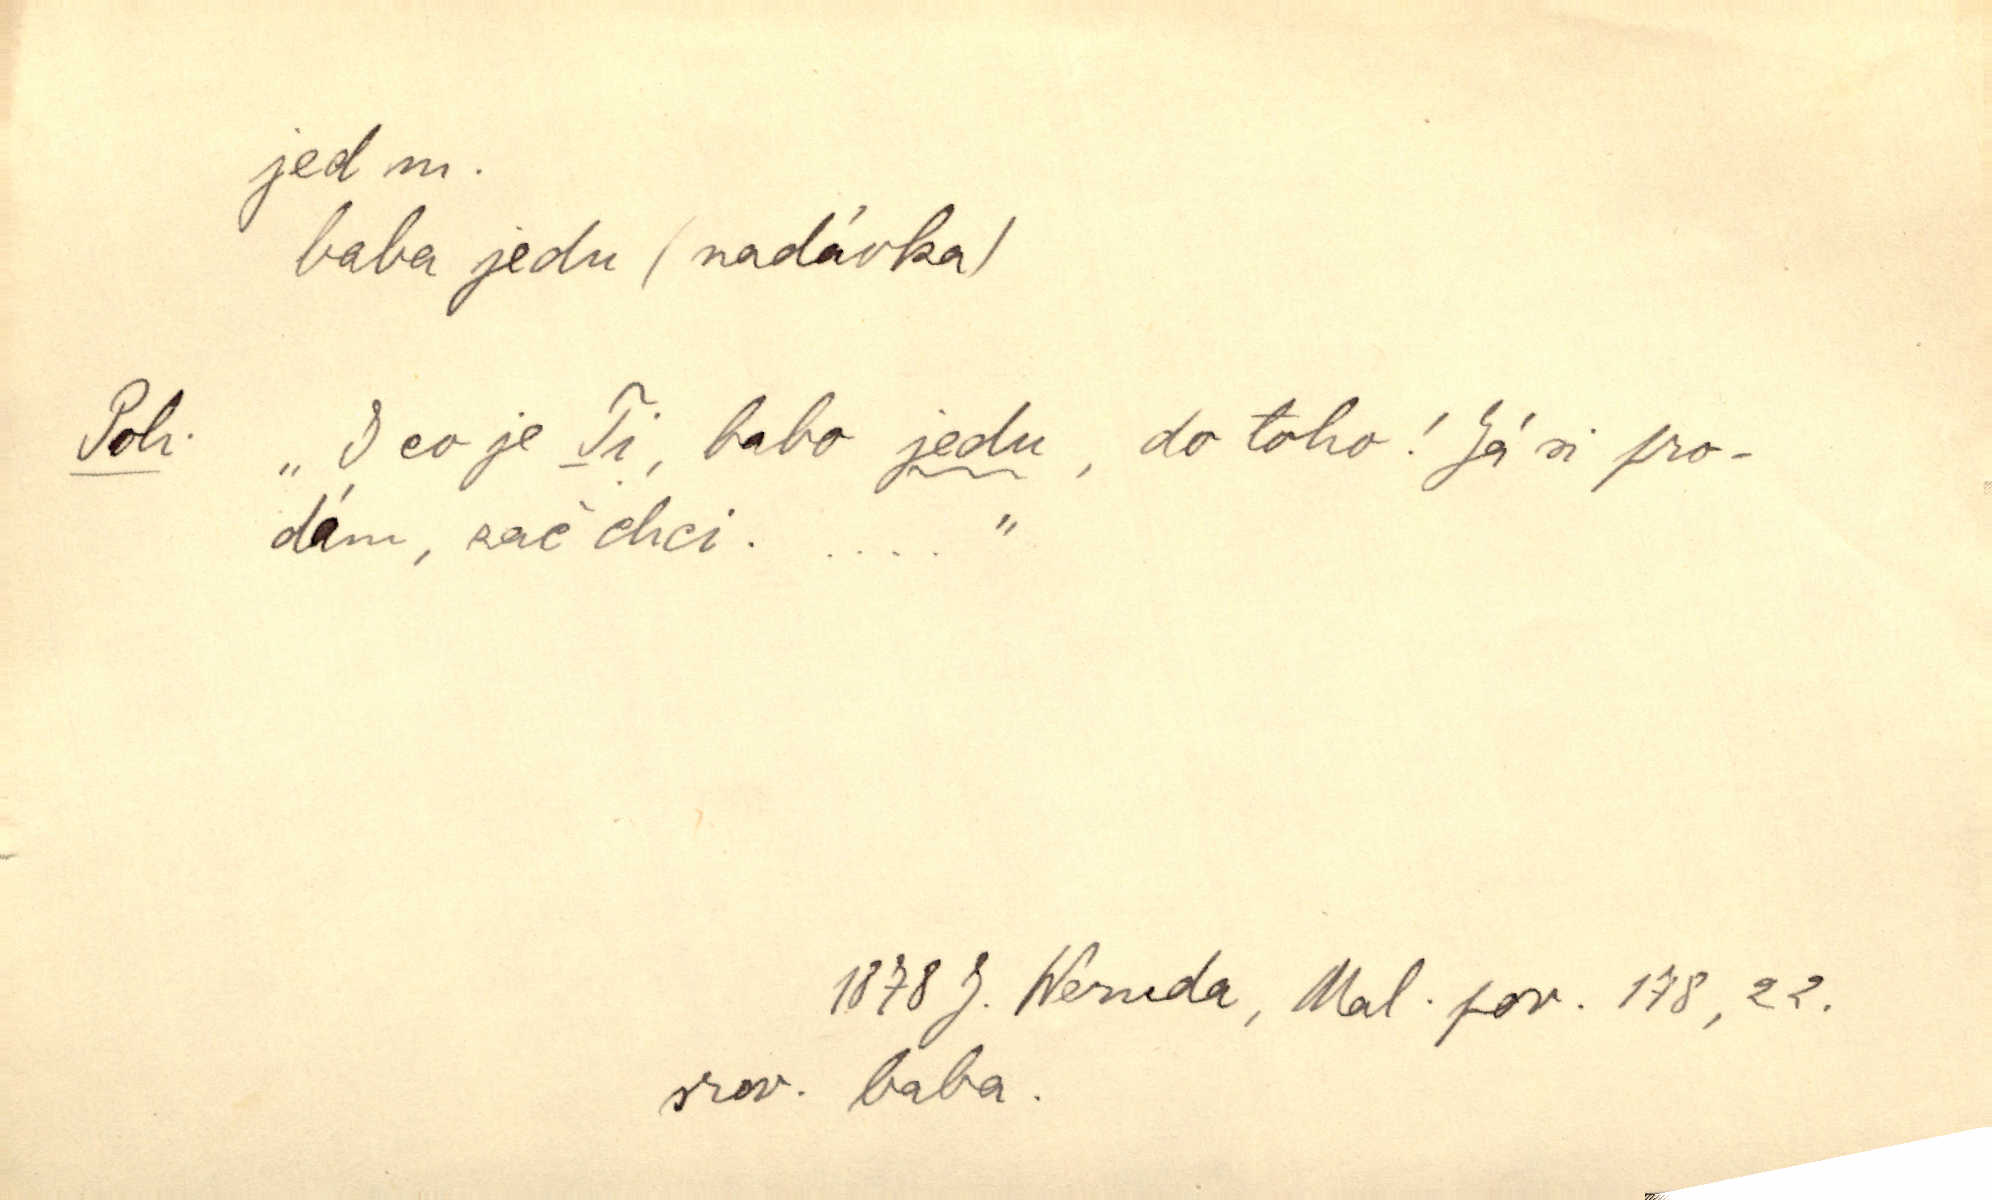 jed m.
baba jedu (nadávka)
Poh. „I co je Ti, babo jedu, do toho! Já si pro-
dám, zač chci. ..... "
1878 J. Neruda, Mal. pov. 178, 22.
srov. baba.